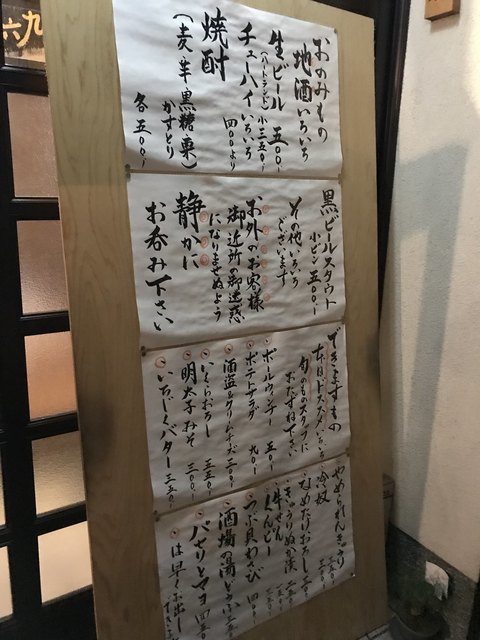 おのみもの
地酒いろいろ
生ビール 五〇〇
(ハートランド) 小三五〇
チューハイいろいろ
四〇〇より
焼酎
(麦 芋 黒糖 栗)
かすとり
各五〇〇
黒ビールスタウト
小ビン 五〇〇
その他いろいろ
ございます
お外のお客様
御近所の御迷惑
になりませぬよう
静かに
お呑み下さい
できますもの
本日オススメいろいろ
旬のものスタッフに
おたずね下さい
ボールウインナー 五〇
ポテトサラダ 九〇
酒盗&クリームチーズ 三〇〇
いくらおろし 三五〇
明太子みそ 三〇〇
いちじくバター 三五〇
やめられんきゅうり
冷奴
なめたけおろし
きゅうりぬか漬
牛すじ
つぶ貝わさび
酒場の湯どうふ
パセリとマヨ
は早くお出し